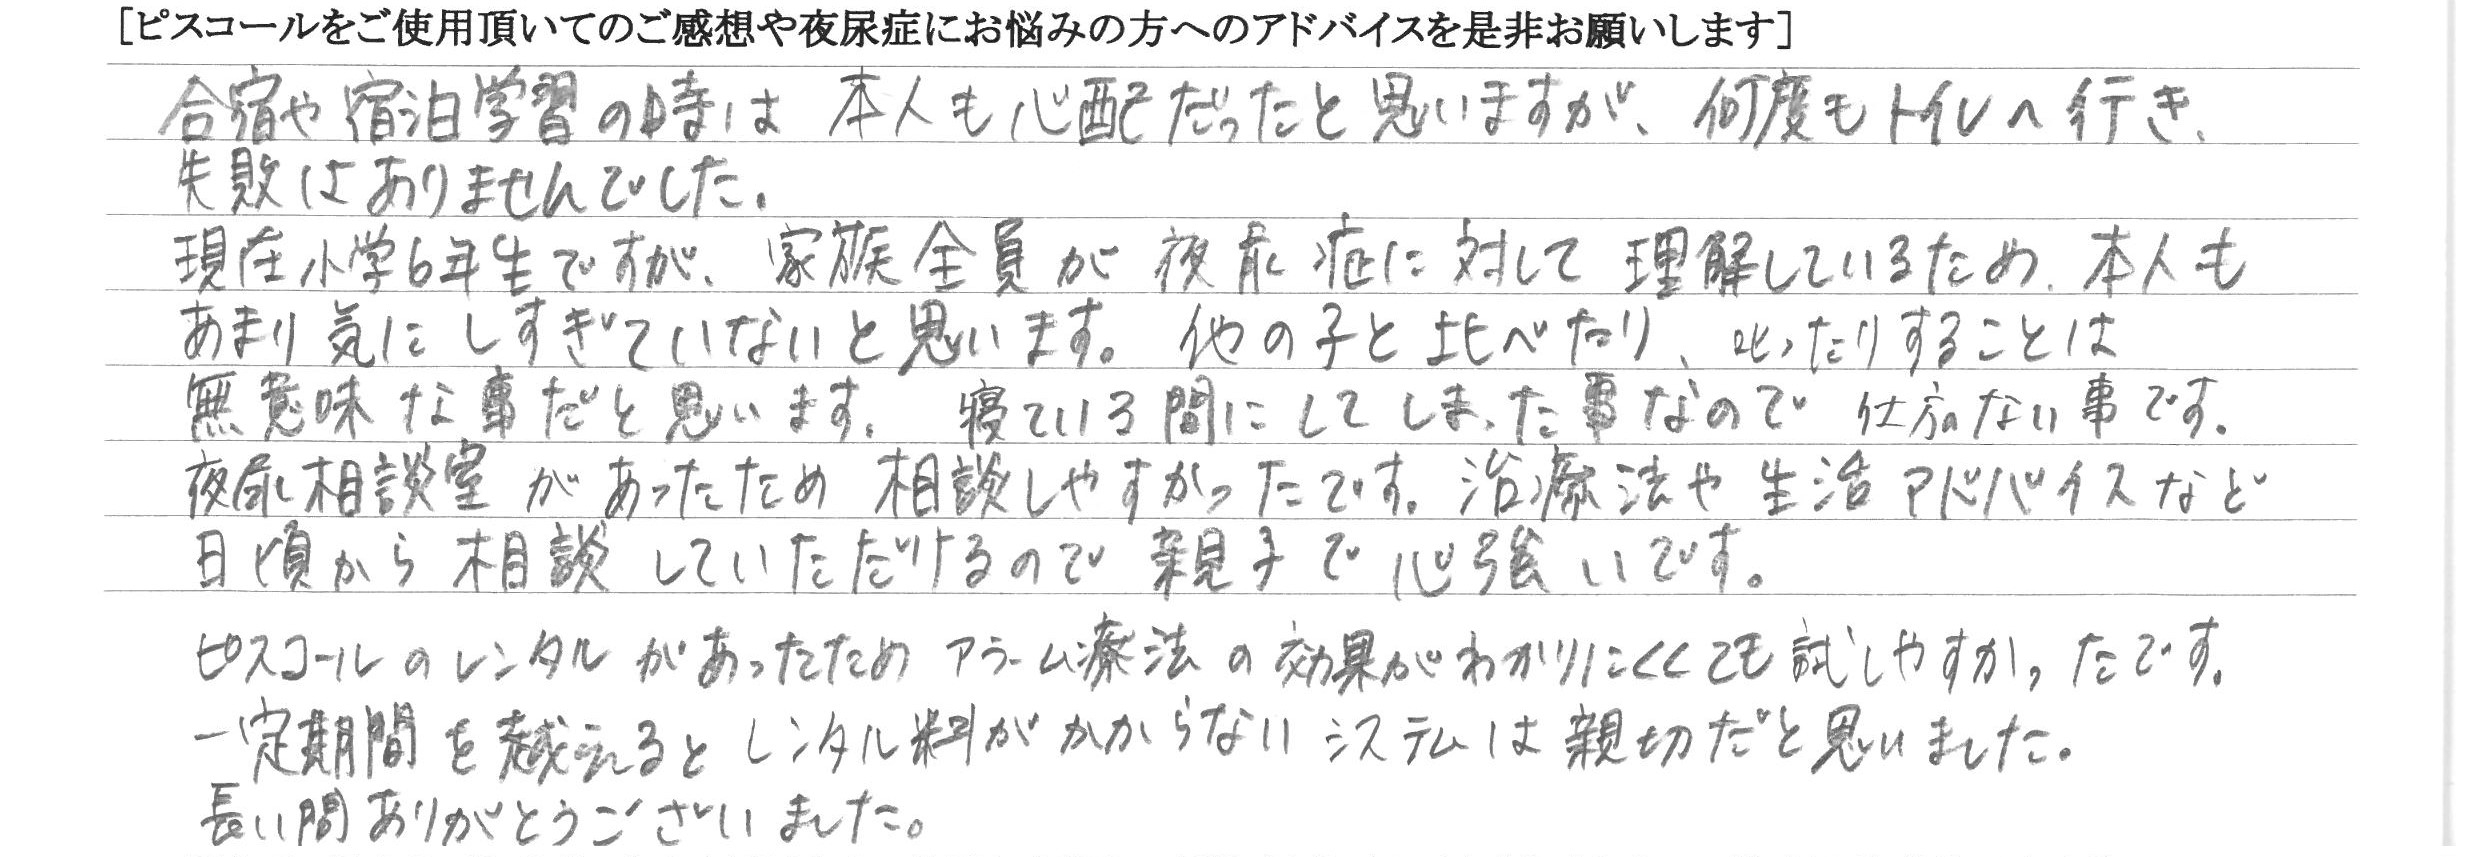 [ピスコールをご使用頂いてのご感想や夜尿症にお悩みの方へのアドバイスを是非お願いします]
合宿や宿泊学習の時は本人も心配だったと思いますが、何度もトイレへ行き、
失敗はありませんでした。
現在小学6年生ですが、家族全員が夜尿症に対して理解しているため、本人も
あまり気にしすぎていないと思います。他の子と比べたり、叱ったりすることは
無意味な事だと思います。寝ている間にしてしまった事なので仕方ない事です。
夜尿相談室があったため相談しやすかったです。治療法や生活アドバイスなど
日頃から相談していただけるので親子で心強いです。
ピスコールのレンタルがあったためアラーム療法の効果がわかりにくくても試しやすかったです。
一定期間を越えるとレンタル料がかからないシステムは親切だと思いました。
長い間ありがとうございました。